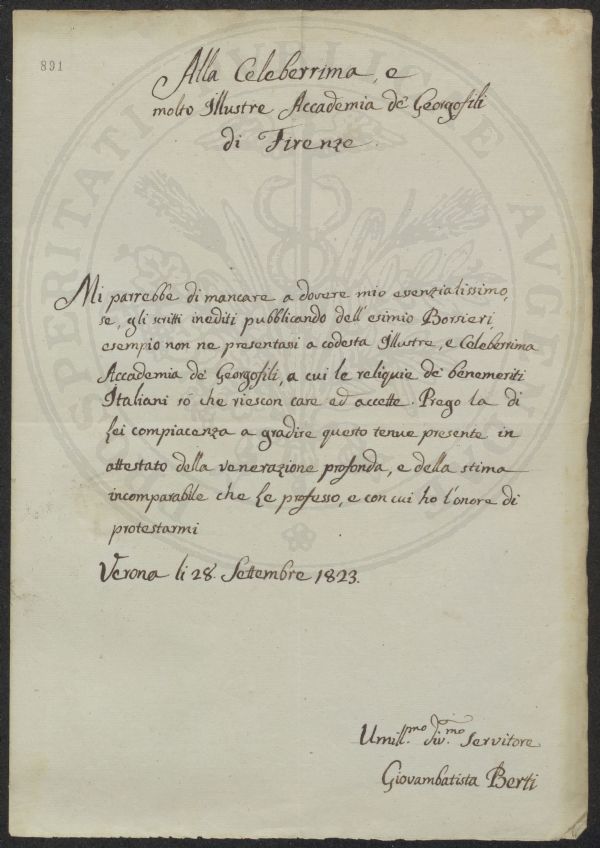 891
Alla Celeberrima, e
molto Illustre Accademia de' Georgofili
di Firenze.
Mi parrebbe di mancare a dovere mio esenzialissimo,
se, gli scritti inediti pubblicando dell'esimio Borsieri
esempio non ne presentassi a codesta Illustre, e Celeberrima
Accademia de' Georgofili, a cui le reliquie de' benemeriti
Italiani sò che riescon care ed accette. Prego la di
Lei compiacenza a gradire questo tenue presente in
attestato della venerazione profonda, e della stima
incomparabile che Le professo, e con cui ho l'onore di
protestarmi
Verona li 28. Settembre 1823.
Umill.mo Div.mo Servitore
Giovambatista Berti
PROSPERITATI PUBLICAE AVGENDAE